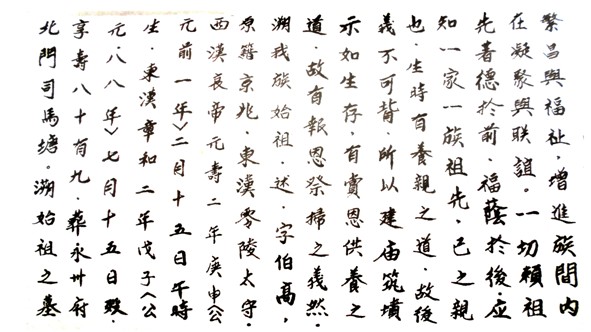 繁昌與福祉,增進族間內
在凝聚與聯誼。一切賴祖
先著德於前,福蔭於後,应
知一家一族祖先,己之親
也,生時有養親之道,故後
義不可背,所以建庙筑墳
示如生存,有賞恩供養之
道,故有報恩祭掃之義然,
溯我族始祖,述,字伯高,
原籍京兆,東漢零陵太守,
西漢哀帝元壽二年庚申(公
元前一年)二月十五日午時
生,東漢章和二年戊子(公
元·八八年)七月十五日歿,
享壽八十有九,葬永州府
北門司馬塘。溯始祖之墓